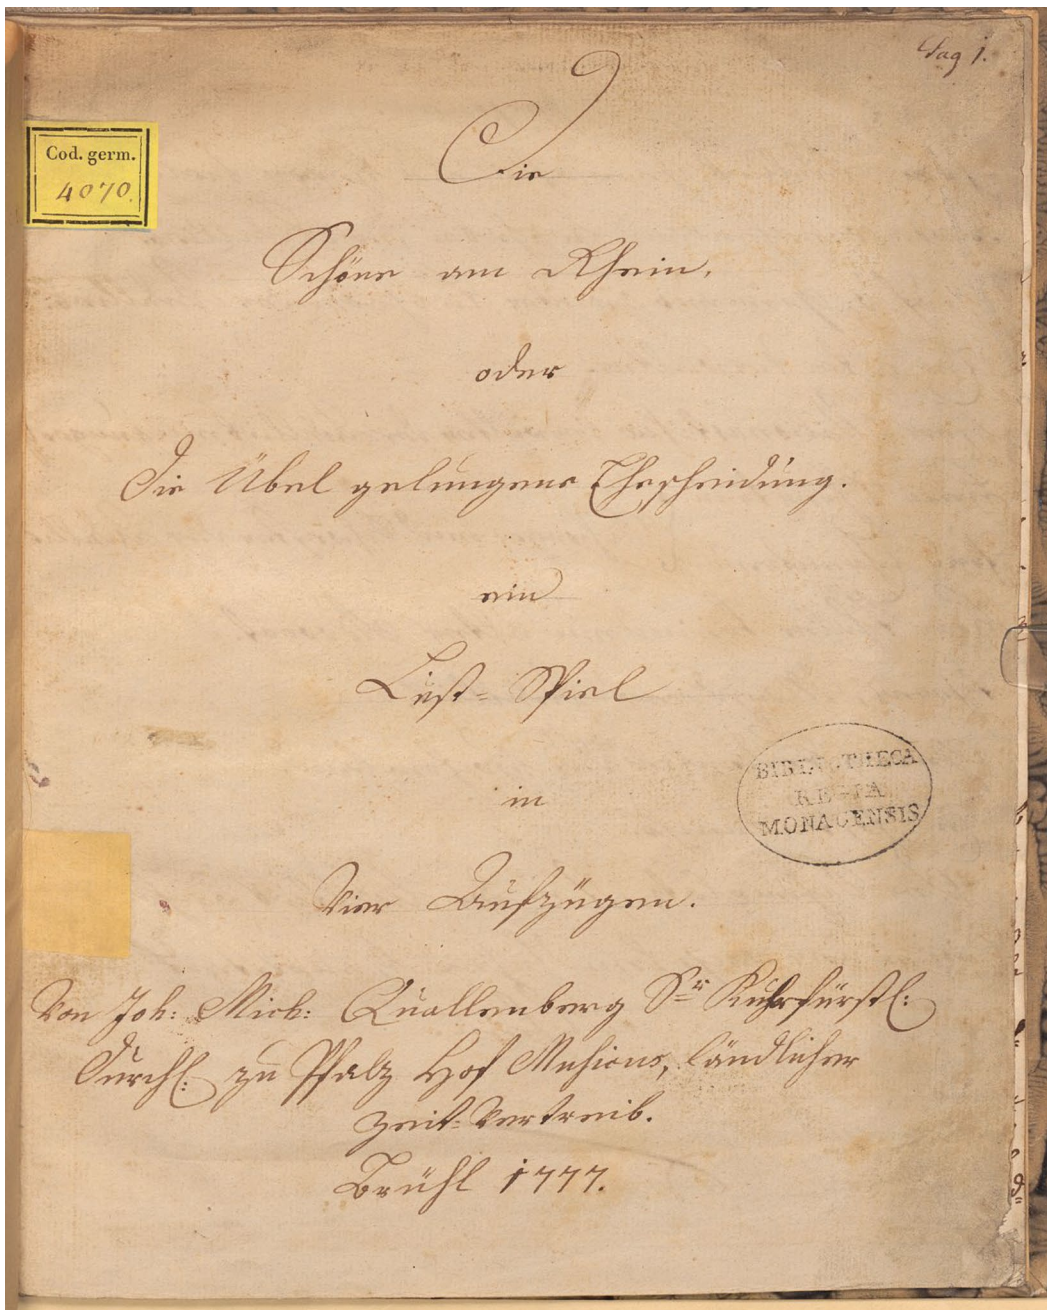 Pag 1.
Cod. germ.
4070.
Die
Schöne am Rhein,
oder
Die Übel gelungene Ehescheidung.
ein
Lust-Spiel
BIBLIOTHECA
REGIA
MONACENSIS
in
Vier Aufzügen.
Von Joh: Mich: Quallenberg Sr Kuhrfürstl:
Durchl: zu Pfalz Hof Musicus, ländlicher
Zeit-Vertreib.
Brühl 1777.